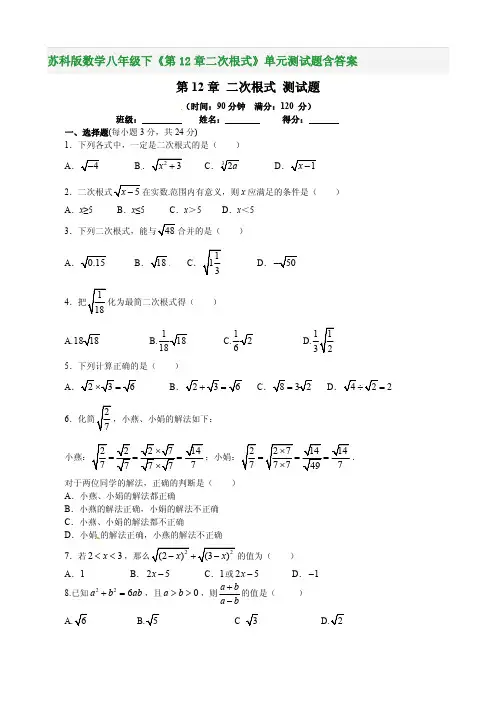 苏科版数学八年级下《第12章二次根式》单元测试题含答案
第12章 二次根式 测试题
（时间：90分钟 满分：120 分）
班级：________ 姓名：________ 得分：______
一、选择题(每小题3分，共24分)
1．下列各式中，一定是二次根式的是（ ）
A．√(-4) B．√(x²+3) C．∛(2a) D．√(x-1)
2．二次根式√(x-5)在实数范围内有意义，则x应满足的条件是（ ）
A．x≥5 B．x≤5 C．x＞5 D．x＜5
3．下列二次根式，能与√48合并的是（ ）
A．√0.15 B．√18 C．√(1 1/3) D．-√50
4．把√(1/18)化为最简二次根式得（ ）
A.18√18 B.1/18 √18 C.1/6 √2 D.1/3 √(1/2)
5．下列计算正确的是（ ）
A．√2×√3=√6 B．√2+√3=√6 C．√8=3√2 D．√4÷√2=2
6．化简√(2/7)，小燕、小娟的解法如下：
小燕：√(2/7)=√2/√7=(√2×√7)/(√7×√7)=√14/7；小娟：√(2/7)=√((2×7)/(7×7))=√14/√49=√14/7．
对于两位同学的解法，正确的判断是（ ）
A．小燕、小娟的解法都正确
B．小燕的解法正确，小娟的解法不正确
C．小燕、小娟的解法都不正确
D．小娟的解法正确，小燕的解法不正确
7．若2<x<3，那么√((2-x)²)+√((3-x)²)的值为（ ）
A．1 B．2x-5 C．1或2x-5 D．-1
8.已知a²+b²=6ab，且a>b>0，则(a+b)/(a-b)的值是（ ）
A.√6 B.√5 C √3 D.√2